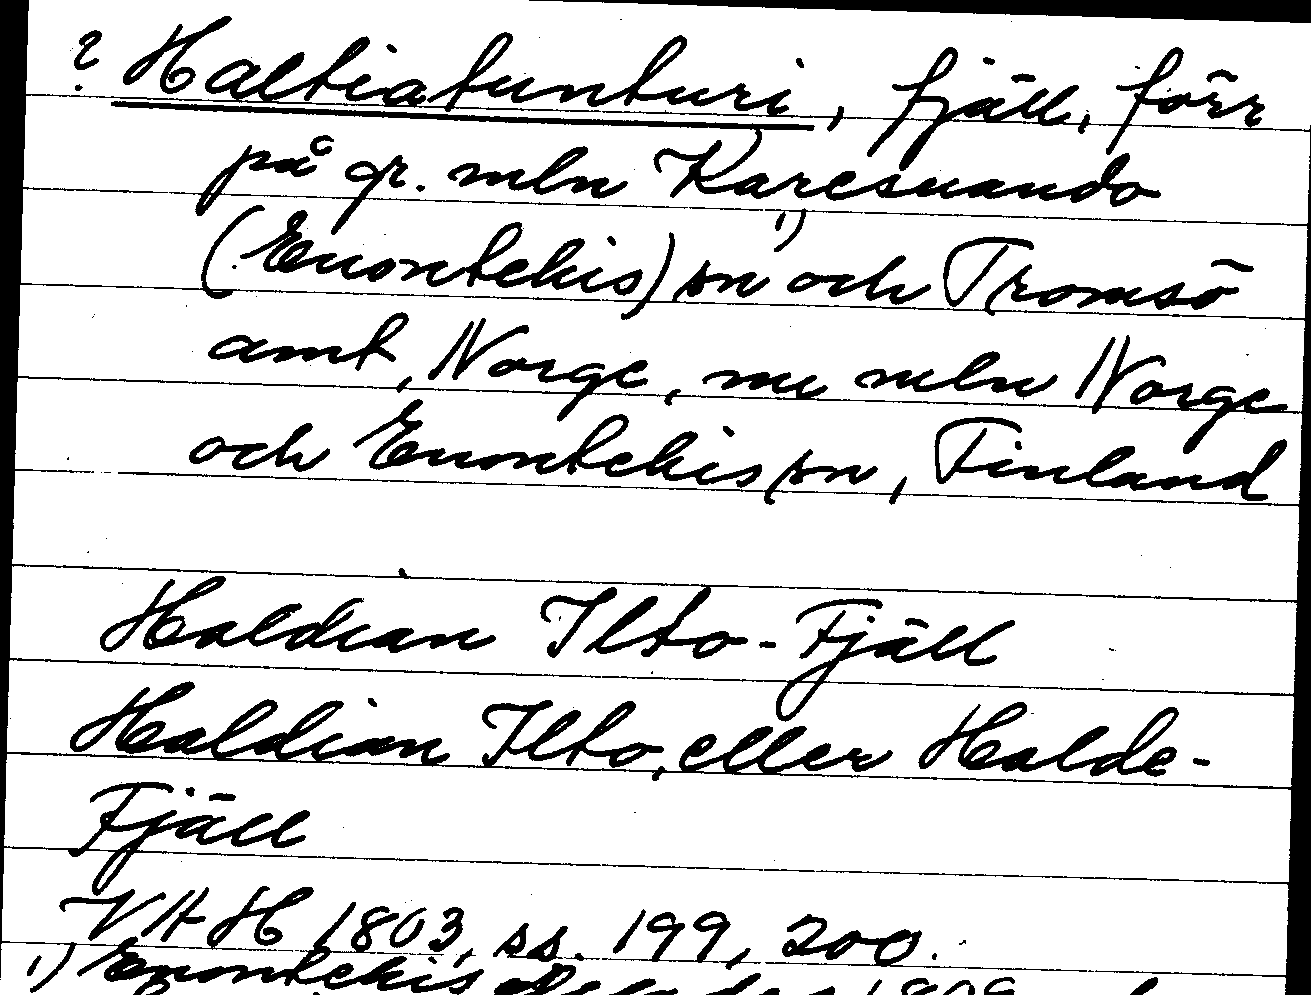 ? Haltiatunturi, fjäll, förr
på gr. mln Karesuando
(Enontekis)¹⁾ sn och Tromsö
amt, Norge, nu mln Norge
och Enontekis sn, Finland
Haldian Ilto-Fjäll
Haldian Ilto, eller Halde-
Fjäll
VAH 1803, ss. 199, 200.
¹⁾ Enontekis delades 1809